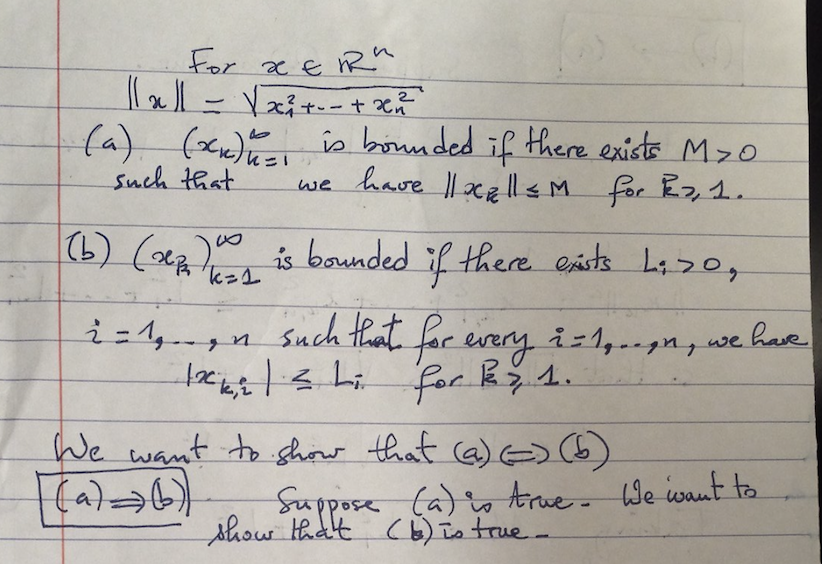 For x ∈ ℝⁿ
||x|| = √(x₁² + -- + xₙ²)
(a) (xₖ)ₖ₌₁^∞ is bounded if there exists M > 0
such that we have ||xₖ|| ≤ M for k ≥ 1.
(b) (xₖ)ₖ₌₁^∞ is bounded if there exists Lᵢ > 0,
i = 1, --, n such that for every i = 1, --, n, we have
|xₖ,ᵢ| ≤ Lᵢ for k ≥ 1.
We want to show that (a) ⟺ (b)
(a) ⟹ (b) Suppose (a) is true - We want to
show that (b) is true -